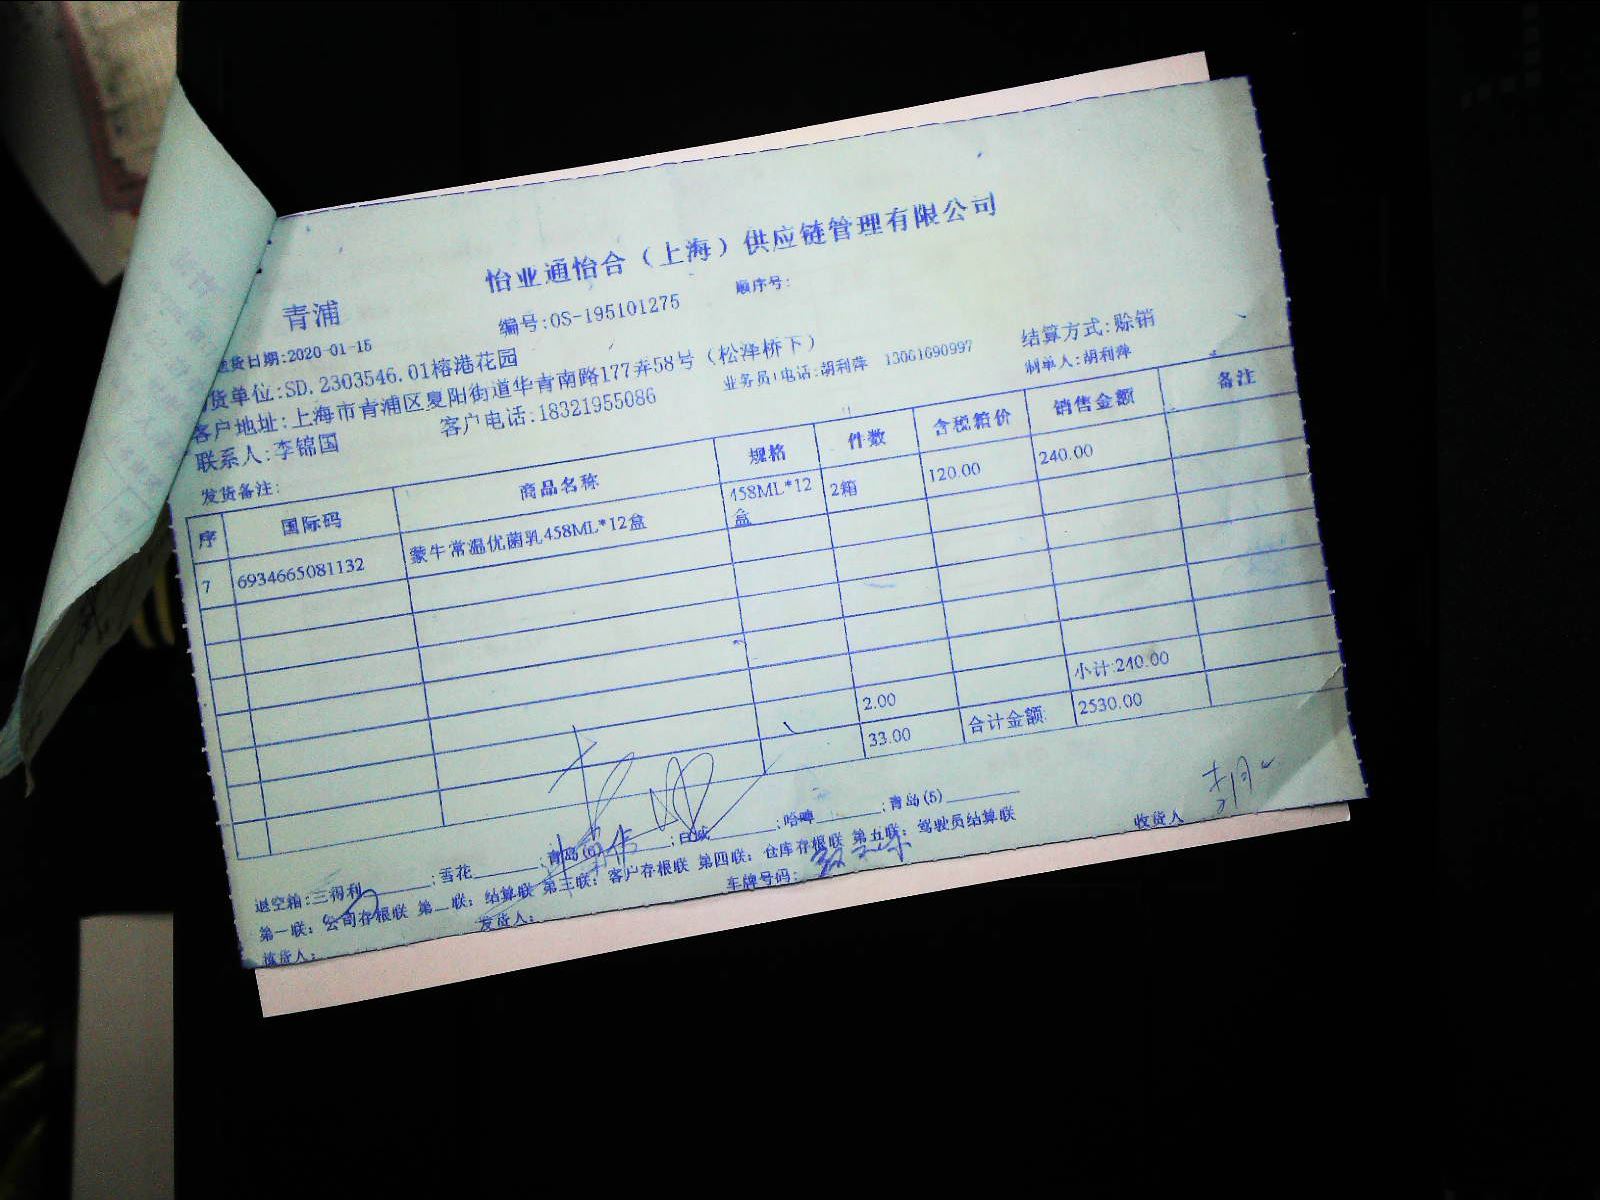 怡业通怡合（上海）供应链管理有限公司
青浦
编号:OS-195101275
顺序号:
货日期:2020-01-15
货单位:SD.2303546.01榕港花园
结算方式:赊销
客户地址:上海市青浦区夏阳街道华青南路177弄58号（松泽桥下）
业务员/电话:胡利萍 13061690997
制单人:胡利萍
联系人:李锦国
客户电话:18321955086
发货备注:
序 国际码 商品名称 规格 件数 含税箱价 销售金额 备注
7 6934665081132 蒙牛常温优菌乳458ML*12盒 458ML*12盒 2箱 120.00 240.00
2.00 小计:240.00
33.00 合计金额: 2530.00
退空箱:三得利 ;雪花 ;青岛(6) ;百威 ;哈啤 ;青岛(5)
第一联: 公司存根联 第二联: 结算联 第三联: 客户存根联 第四联: 仓库存根联 第五联: 驾驶员结算联
拣货人: 发货人: 车牌号码: 收货人